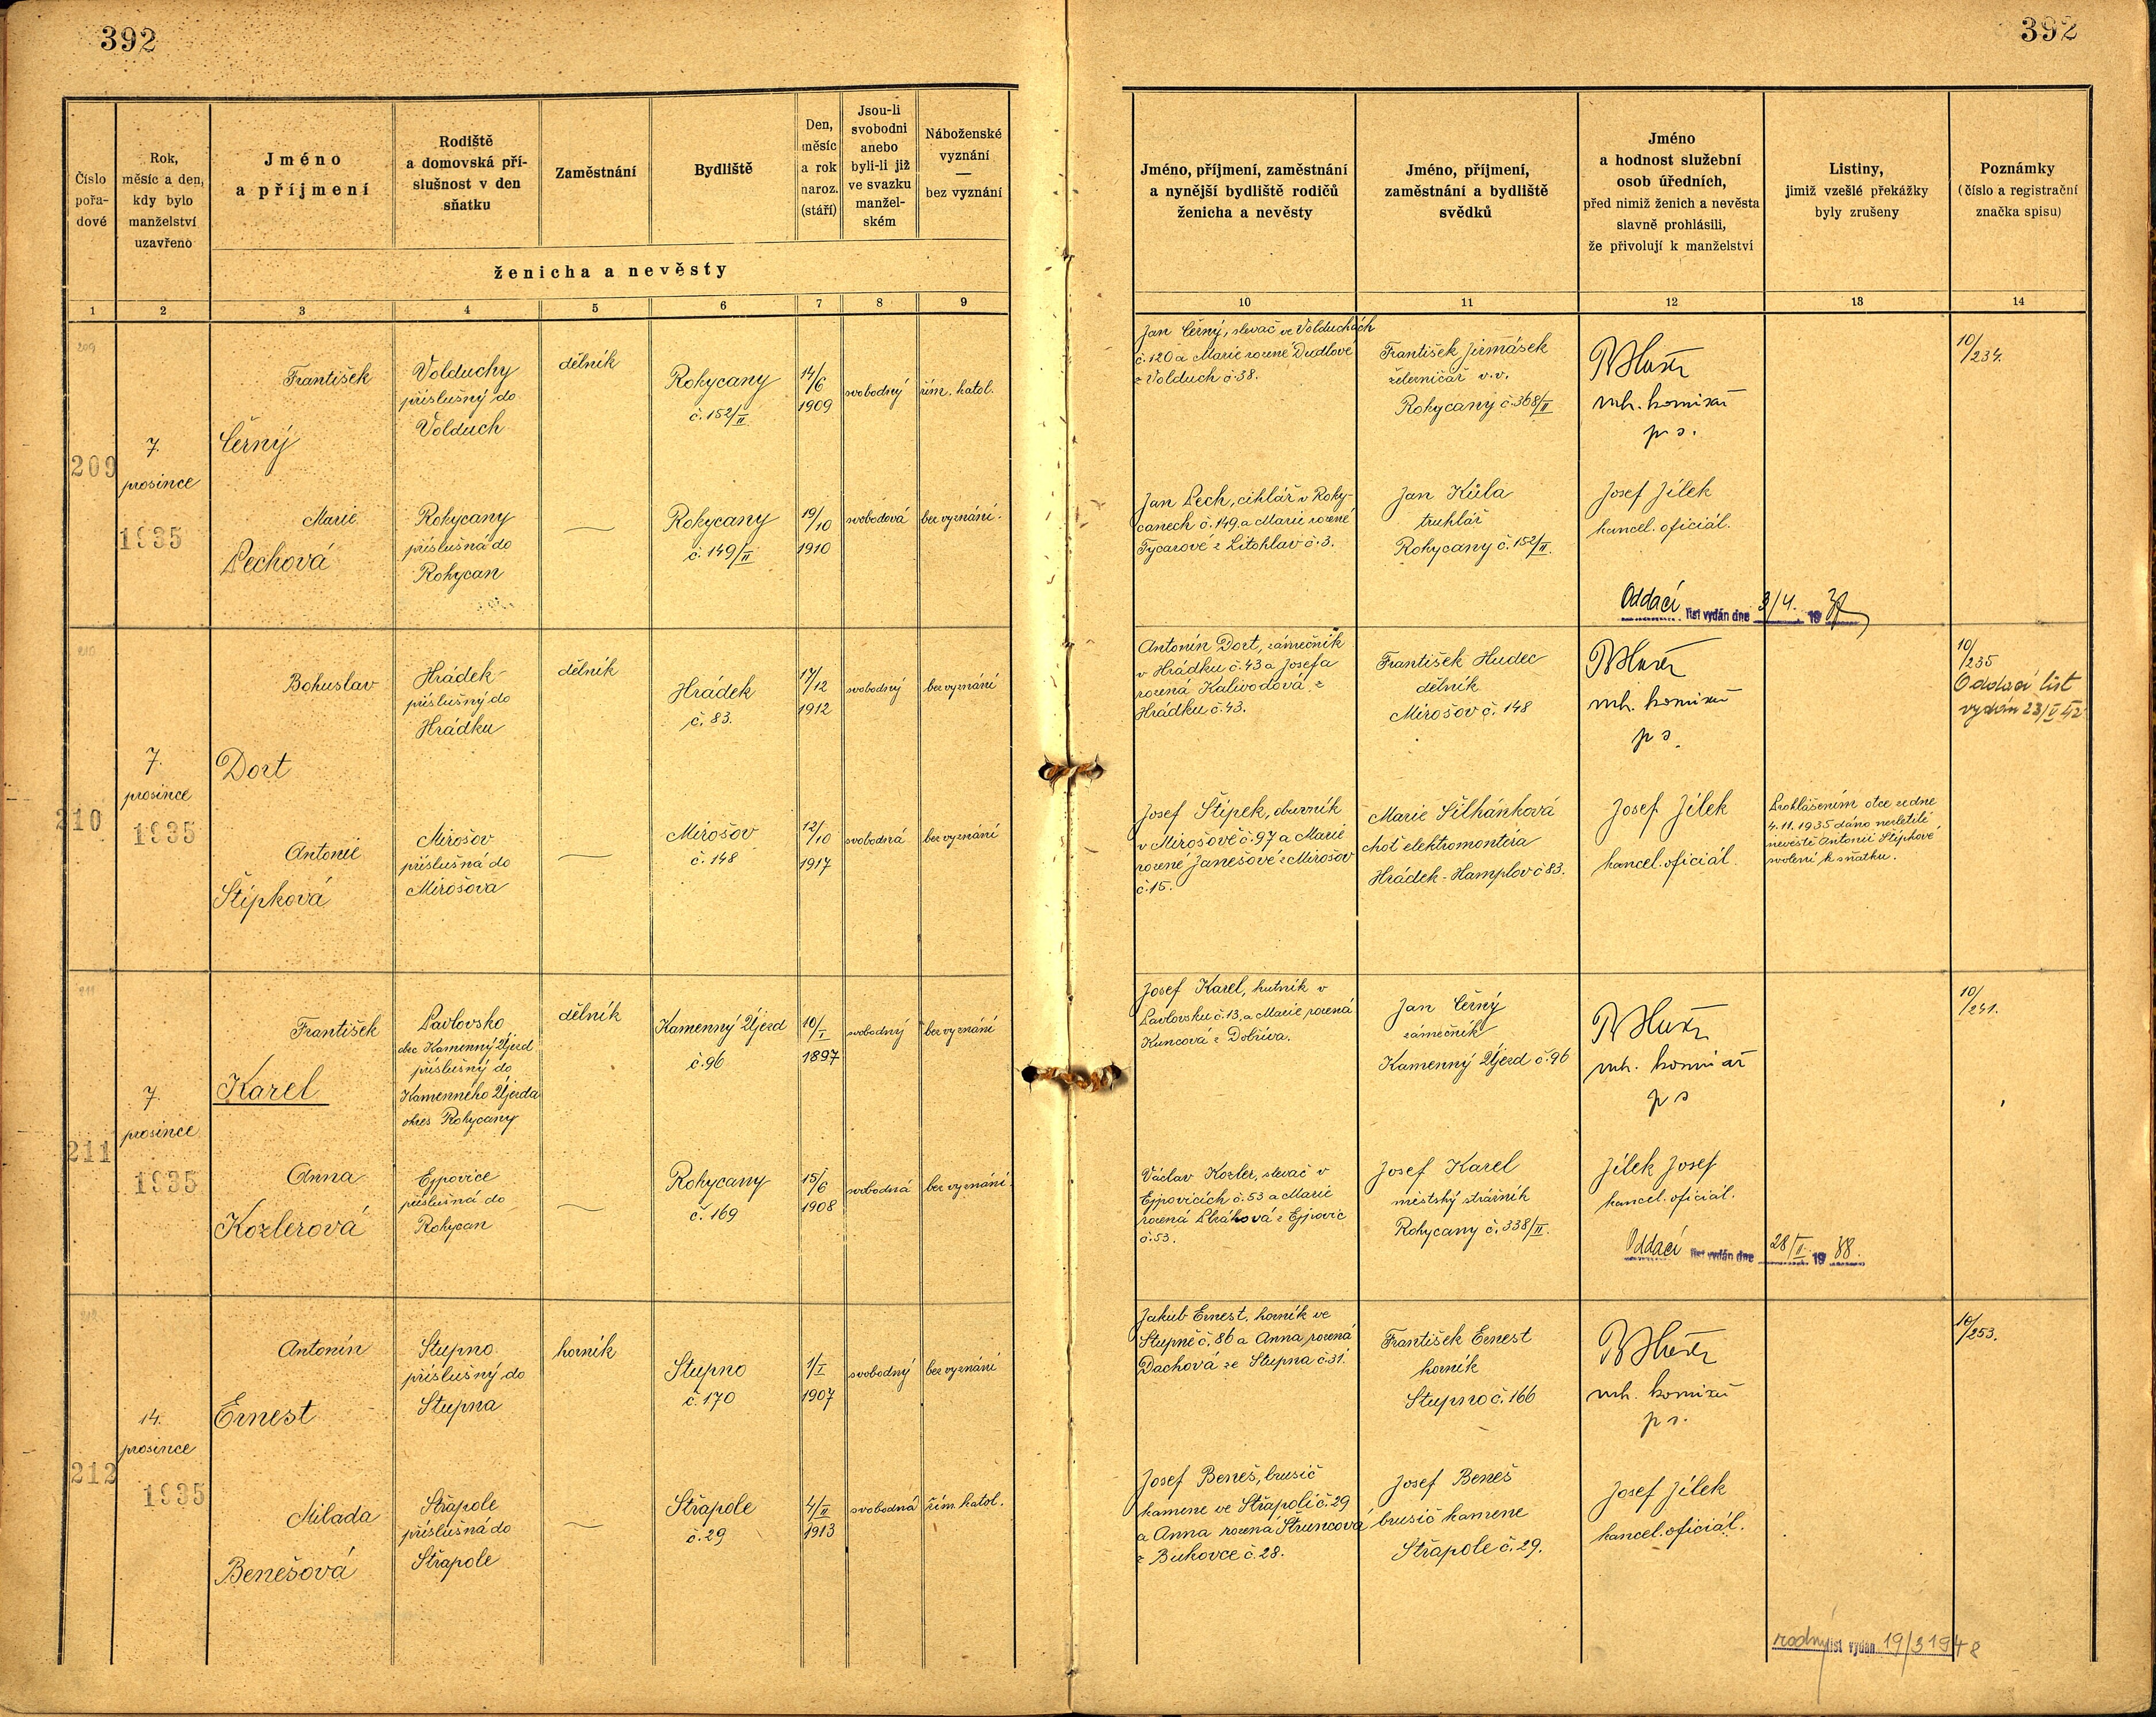 392
392
Číslo
pořa-
dové
Rok,
měsíc a den,
kdy bylo
manželství
uzavřeno
Jméno
a příjmení
Rodiště
a domovská pří-
slušnost v den
sňatku
Zaměstnání
Bydliště
Den,
měsíc
a rok
naroz.
(stáří)
Jsou-li
svobodni
anebo
byli-li již
ve svazku
manžel-
ském
Náboženské
vyznání
—
bez vyznání
ženicha a nevěsty
Jméno, příjmení, zaměstnání
a nynější bydliště rodičů
ženicha a nevěsty
Jméno, příjmení,
zaměstnání a bydliště
svědků
Jméno
a hodnost služební
osob úředních,
před nimiž ženich a nevěsta
slavně prohlásili,
že přivolují k manželství
Listiny,
jimiž vzešlé překážky
byly zrušeny
Poznámky
(číslo a registrační
značka spisu)
1 2 3 4 5 6 7 8 9 10 11 12 13 14
209
209
7.
prosince
1935
František
Černý
Volduchy
příslušný do
Volduch
dělník
Rokycany
č. 152/II
14/6
1909
svobodný
řím. katol.
Jan Černý, slevač ve Volduchách
č. 120 a Marie rozené Dudlové
z Volduch č. 38.
František Jirmásek
železničář v.v.
Rokycany č. 368/II
vrch. komisař
p. s.
10/234.
Marie
Pechová
Rokycany
příslušná do
Rokycan
Rokycany
č. 149/II
19/10
1910
svobodová
bez vyznání.
Jan Pech, cihlář v Roky-
canech č. 149. a Marie rozené
Tycarové z Litohlav č. 3.
Jan Kůla
truhlář
Rokycany č. 152/II.
Josef Jílek
kancel. oficiál.
Oddací list vydán dne 3/4. 19
210
210
7.
prosince
1935
Bohuslav
Dort
Hrádek
příslušný do
Hrádku
dělník
Hrádek
č. 83.
17/12
1912
svobodný
bez vyznání
Antonín Dort, zámečník
v Hrádku č. 43 a Josefa
rozená Kalivodová z
Hrádku č. 43.
František Hudec
dělník
Mirošov č. 148
vrch. komisař
p s.
10/235
Oddací list
vydán 23/V 42
Antonie
Štípková
Mirošov
příslušná do
Mirošova
Mirošov
č. 148
12/10
1917
svobodná
bez vyznání
Josef Štípek, obuvník
v Mirošově č. 97 a Marie
rozené Janešové z Mirošov
č. 15.
Marie Šilhánková
choť elektromontéra
Hrádek - Hamplov č 83.
Josef Jílek
kancel. oficiál.
Prohlášením otce ze dne
4. 11. 1935 dáno nezletilé
nevěstě Antonii Štípkové
svolení k sňatku.
211
211
7.
prosince
1935
František
Karel
Pavlovsko
obec Kamenný Újezd
příslušný do
Kamenného Újezda
okres Rokycany
dělník
Kamenný Újezd
č. 96
10/I.
1897
svobodný
bez vyznání
Josef Karel, hutník v
Pavlovsku č. 13, a Marie rozená
Kuncová z Dobříva.
Jan Černý
zámečník
Kamenný Újezd č. 96
vrch. komisař
p s
10/241.
Anna
Kozlerová
Ejpovice
příslušná do
Rokycan
Rokycany
č. 169
15/6
1908
svobodná
bez vyznání.
Václav Kozler, slevač v
Ejpovicích č. 53 a Marie
rozená z Ejpovic
č. 53.
Josef Karel
městský strážník
Rokycany č. 338/II.
Jílek Josef
kancel. oficiál.
Oddací list vydán dne 28/II. 19 88.
212
212
14.
prosince
1935
Antonín
Ernest
Stupno
příslušný do
Stupna
horník
Stupno
č. 170
1/I
1907
svobodný
bez vyznání
Jakub Ernest, horník ve
Stupně č. 86 a Anna rozená
Dachová ze Stupna č. 31.
František Ernest
horník
Stupno č. 166
vrch. komisař
p s.
10/253.
Milada
Benešová
Střapole
příslušná do
Střapole
Střapole
č. 29
4/II
1913
svobodná
řím. katol.
Josef Beneš, brusič
kamene ve Střapoli č. 29
a Anna rozená Struncová
z Bukovce č. 28.
Josef Beneš
brusič kamene
Střapole č. 29.
Josef Jílek
kancel. oficiál.
rodný list vydán 19/3 1948